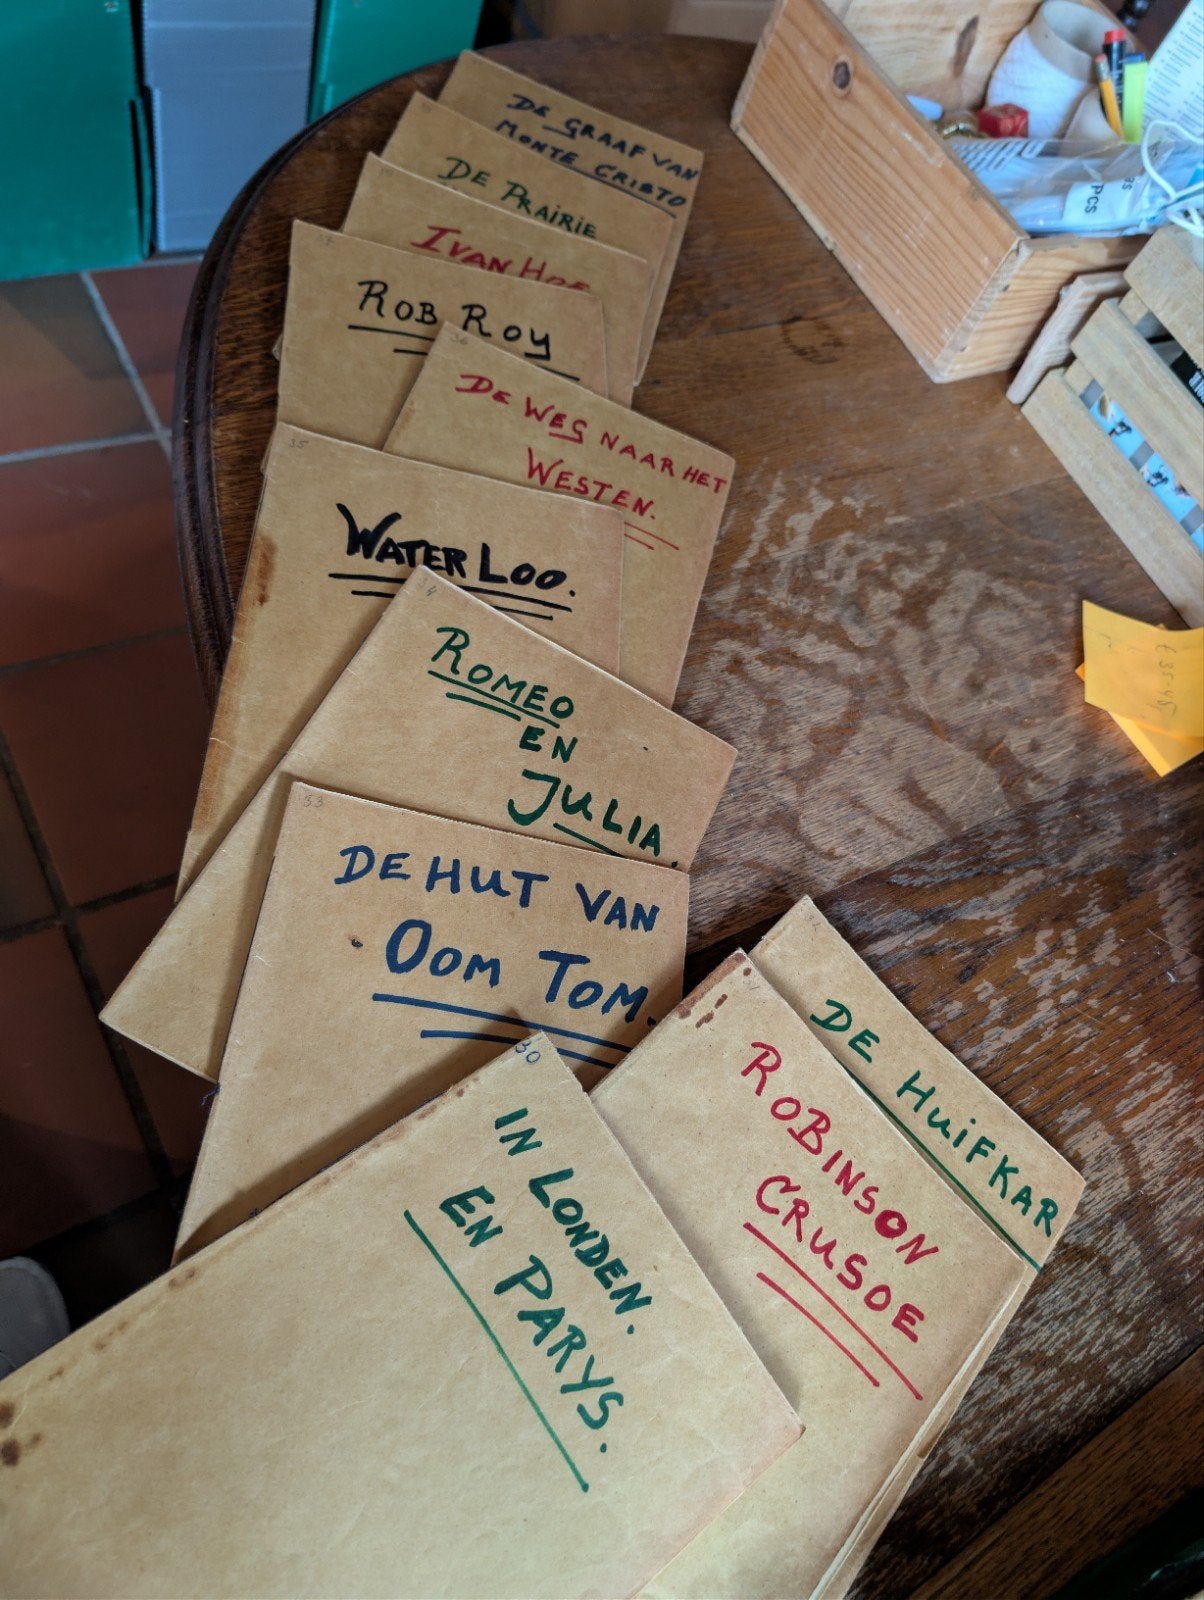 DE GRAAF VAN
MONTE CRISTO
DE PRAIRIE
IVAN HOE
37
ROB ROY
36
DE WEG NAAR HET
WESTEN.
35
WATER LOO.
ROMEO
EN
JULIA.
33
DE HUT VAN
OOM TOM.
DE HUIFKAR
ROBINSON
CRUSOE
30
IN LONDEN.
EN PARYS.
PCS